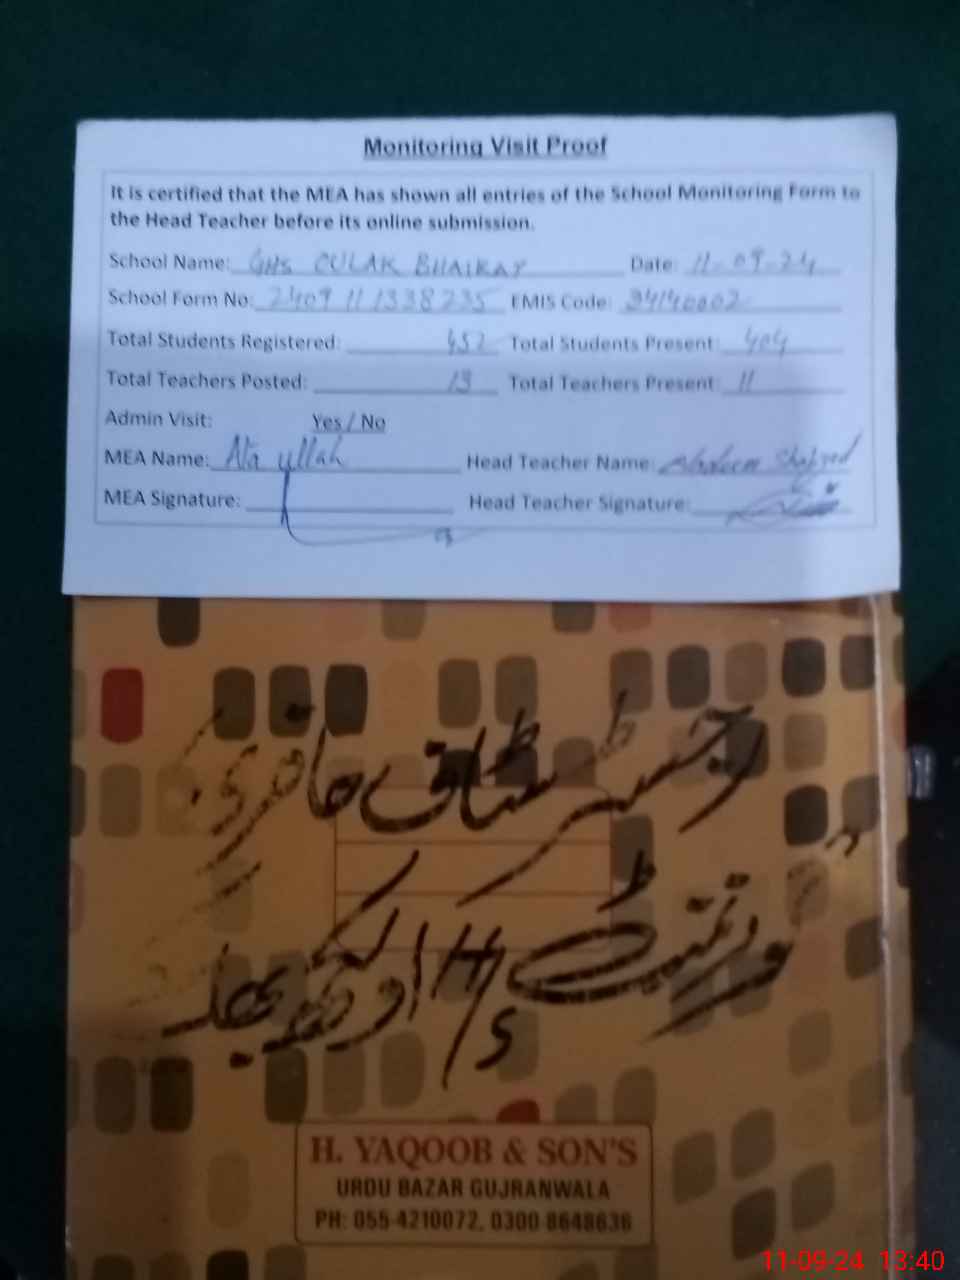 Monitoring Visit Proof
It is certified that the MEA has shown all entries of the School Monitoring Form to
the Head Teacher before its online submission.
School Name: GHS OULAK BHAIKAY Date: 11-09-24
School Form No: 2409 11 1338235 EMIS Code: 34140002
Total Students Registered: 452 Total Students Present: 404
Total Teachers Posted: 13 Total Teachers Present: 11
Admin Visit: Yes / No
MEA Name: Ata ullah Head Teacher Name: Shahzad
MEA Signature: Head Teacher Signature:
رجسٹر سٹاف حاضری
گورنمنٹ H/S اولکھ بھائیکے
H. YAQOOB & SON'S
URDU BAZAR GUJRANWALA
PH: 055-4210072, 0300-8648636
11-09-24 13:40